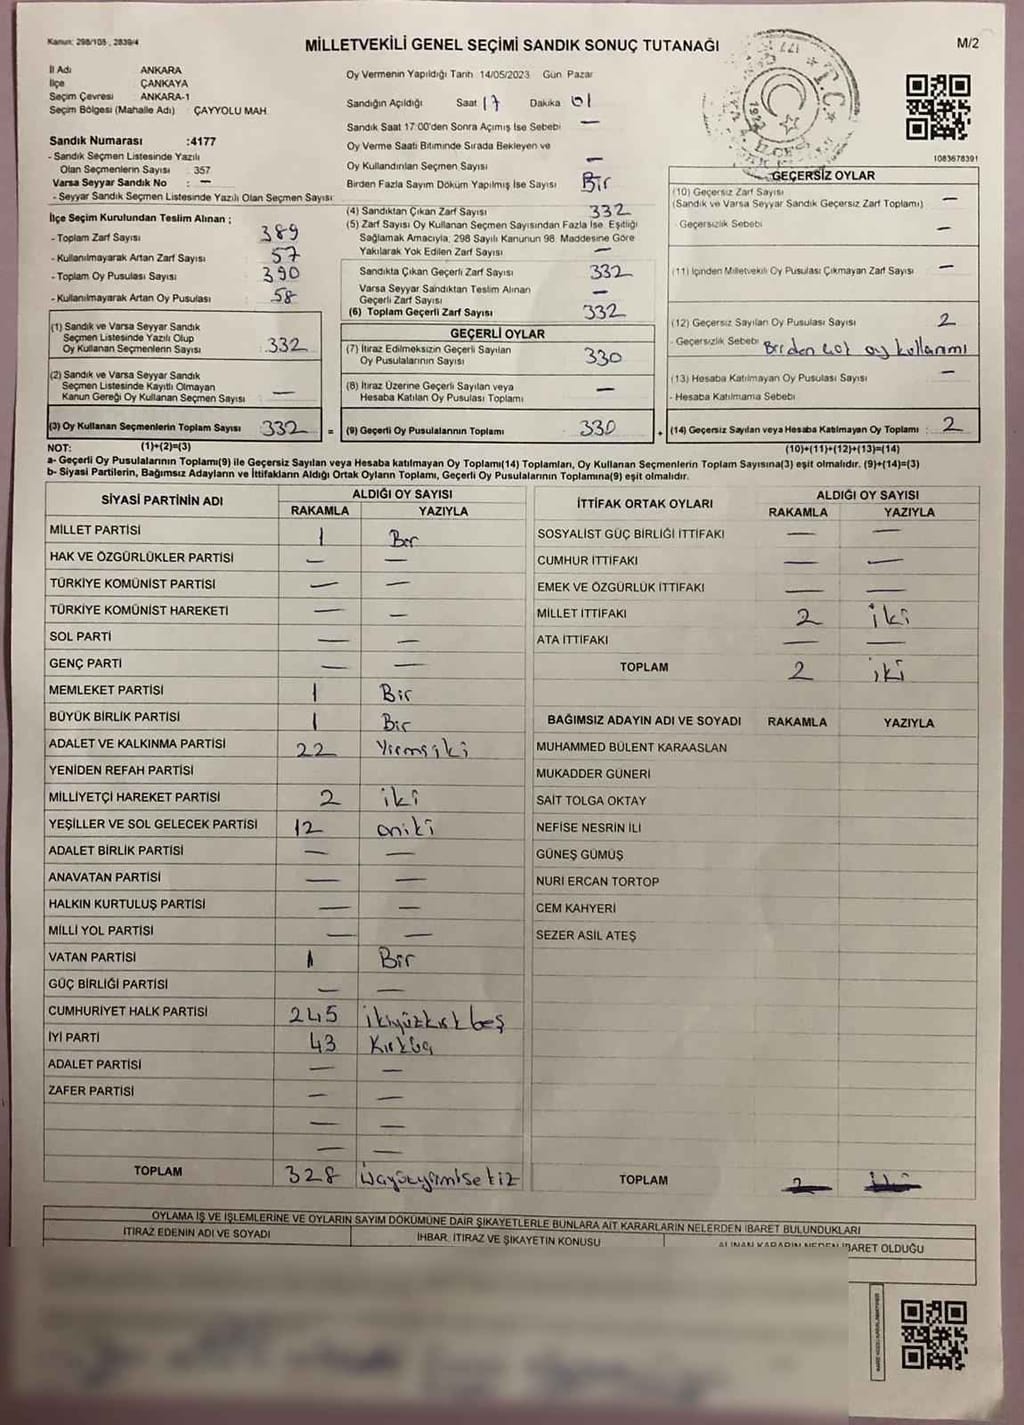 Kanun: 298/105, 2839/4
MİLLETVEKİLİ GENEL SEÇİMİ SANDIK SONUÇ TUTANAĞI
M/2
İl Adı ANKARA
İlçe ÇANKAYA
Seçim Çevresi ANKARA-1
Seçim Bölgesi (Mahalle Adı) ÇAYYOLU MAH
Sandık Numarası :4177
- Sandık Seçmen Listesinde Yazılı
Olan Seçmenlerin Sayısı : 357
Varsa Seyyar Sandık No : —
- Seyyar Sandık Seçmen Listesinde Yazılı Olan Seçmen Sayısı:
İlçe Seçim Kurulundan Teslim Alınan ;
- Toplam Zarf Sayısı 389
- Kullanılmayarak Artan Zarf Sayısı 57
- Toplam Oy Pusulası Sayısı 390
- Kullanılmayarak Artan Oy Pusulası 58
(1) Sandık ve Varsa Seyyar Sandık
Seçmen Listesinde Yazılı Olup
Oy Kullanan Seçmenlerin Sayısı 332
(2) Sandık ve Varsa Seyyar Sandık
Seçmen Listesinde Kayıtlı Olmayan
Kanun Gereği Oy Kullanan Seçmen Sayısı —
(3) Oy Kullanan Seçmenlerin Toplam Sayısı 332 =
Oy Vermenin Yapıldığı Tarih 14/05/2023 Gün Pazar
Sandığın Açıldığı Saat 17 Dakika 01
Sandık Saat 17:00'den Sonra Açımış İse Sebebi —
Oy Verme Saati Bitiminde Sırada Bekleyen ve
Oy Kullandırılan Seçmen Sayısı —
Birden Fazla Sayım Döküm Yapılmış İse Sayısı Bir
(4) Sandıktan Çıkan Zarf Sayısı 332
(5) Zarf Sayısı Oy Kullanan Seçmen Sayısından Fazla İse, Eşitliği
Sağlamak Amacıyla, 298 Sayılı Kanunun 98. Maddesine Göre
Yakılarak Yok Edilen Zarf Sayısı —
Sandıkta Çıkan Geçerli Zarf Sayısı 332
Varsa Seyyar Sandıktan Teslim Alınan
Geçerli Zarf Sayısı —
(6) Toplam Geçerli Zarf Sayısı 332
GEÇERLİ OYLAR
(7) İtiraz Edilmeksizin Geçerli Sayılan
Oy Pusulalarının Sayısı 330
(8) İtiraz Üzerine Geçerli Sayılan veya
Hesaba Katılan Oy Pusulası Toplamı —
(9) Geçerli Oy Pusulalarının Toplamı 330 +
1083678391
GEÇERSİZ OYLAR
(10) Geçersiz Zarf Sayısı —
(Sandık ve Varsa Seyyar Sandık Geçersiz Zarf Toplamı)
- Geçersizlik Sebebi —
(11) İçinden Milletvekili Oy Pusulası Çıkmayan Zarf Sayısı —
(12) Geçersiz Sayılan Oy Pusulası Sayısı 2
- Geçersizlik Sebebi Birden çok oy kullanımı
(13) Hesaba Katılmayan Oy Pusulası Sayısı —
- Hesaba Katılmama Sebebi
(14) Geçersiz Sayılan veya Hesaba Katılmayan Oy Toplamı : 2
NOT: (1)+(2)=(3) (10)+(11)+(12)+(13)=(14)
a- Geçerli Oy Pusulalarının Toplamı(9) ile Geçersiz Sayılan veya Hesaba katılmayan Oy Toplamı(14) Toplamları, Oy Kullanan Seçmenlerin Toplam Sayısına(3) eşit olmalıdır. (9)+(14)=(3)
b- Siyasi Partilerin, Bağımsız Adayların ve İttifakların Aldığı Ortak Oyların Toplamı, Geçerli Oy Pusulalarının Toplamına(9) eşit olmalıdır.
SİYASİ PARTİNİN ADI ALDIĞI OY SAYISI
RAKAMLA YAZIYLA
MİLLET PARTİSİ 1 Bir
HAK VE ÖZGÜRLÜKLER PARTİSİ — —
TÜRKİYE KOMÜNİST PARTİSİ — —
TÜRKİYE KOMÜNİST HAREKETİ — —
SOL PARTİ — —
GENÇ PARTİ — —
MEMLEKET PARTİSİ 1 Bir
BÜYÜK BİRLİK PARTİSİ 1 Bir
ADALET VE KALKINMA PARTİSİ 22 Yirmiiki
YENİDEN REFAH PARTİSİ
MİLLİYETÇİ HAREKET PARTİSİ 2 iki
YEŞİLLER VE SOL GELECEK PARTİSİ 12 oniki
ADALET BİRLİK PARTİSİ — —
ANAVATAN PARTİSİ — —
HALKIN KURTULUŞ PARTİSİ — —
MİLLİ YOL PARTİSİ — —
VATAN PARTİSİ 1 Bir
GÜÇ BİRLİĞİ PARTİSİ — —
CUMHURİYET HALK PARTİSİ 245 ikiyüzkırkbeş
İYİ PARTİ 43 Kırküç
ADALET PARTİSİ — —
ZAFER PARTİSİ — —
— —
— —
TOPLAM 328 üçyüzyirmisekiz
İTTİFAK ORTAK OYLARI ALDIĞI OY SAYISI
RAKAMLA YAZIYLA
SOSYALİST GÜÇ BİRLİĞİ İTTİFAKI — —
CUMHUR İTTİFAKI — —
EMEK VE ÖZGÜRLÜK İTTİFAKI — —
MİLLET İTTİFAKI 2 iki
ATA İTTİFAKI — —
TOPLAM 2 iki
BAĞIMSIZ ADAYIN ADI VE SOYADI RAKAMLA YAZIYLA
MUHAMMED BÜLENT KARAASLAN
MUKADDER GÜNERİ
SAİT TOLGA OKTAY
NEFİSE NESRİN İLİ
GÜNEŞ GÜMÜŞ
NURİ ERCAN TORTOP
CEM KAHYERİ
SEZER ASİL ATEŞ
TOPLAM 2 iki
OYLAMA İŞ VE İŞLEMLERİNE VE OYLARIN SAYIM DÖKÜMÜNE DAİR ŞİKAYETLERLE BUNLARA AİT KARARLARIN NELERDEN İBARET BULUNDUKLARI
İTİRAZ EDENİN ADI VE SOYADI İHBAR, İTİRAZ VE ŞİKAYETİN KONUSU ALINAN KARARIN NEDEN İBARET OLDUĞU